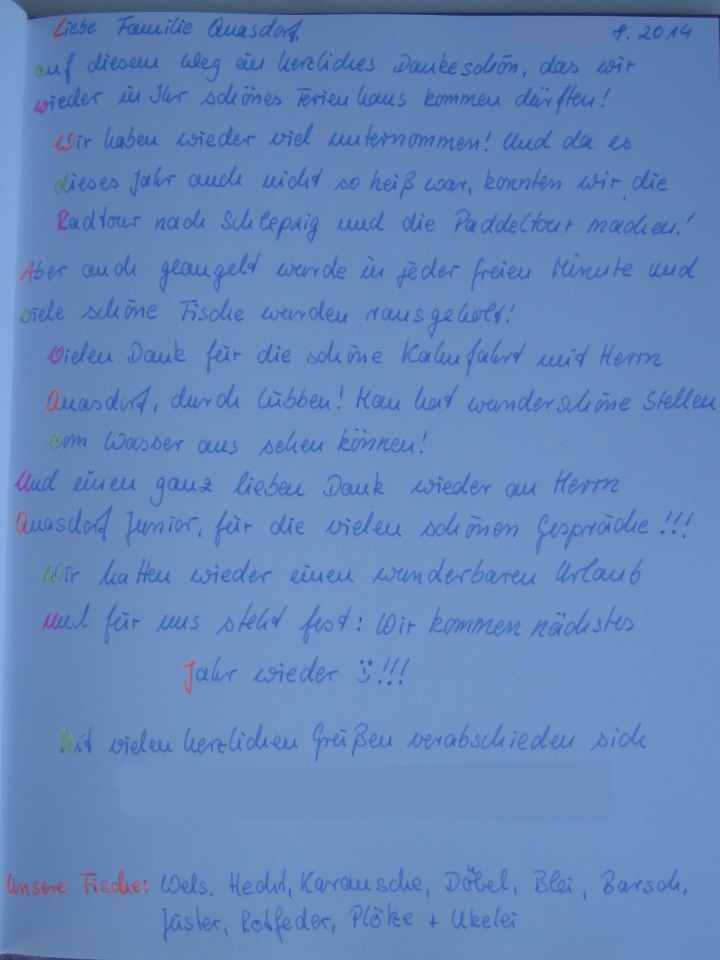 Liebe Familie Quasdorf, 8. 2014
auf diesem Weg ein herzliches Dankeschön, das wir
wieder in Ihr schönes Ferienhaus kommen dürften!
Wir haben wieder viel unternommen! Und da es
dieses Jahr auch nicht so heiß war, konnten wir die
Radtour nach Schlepzig und die Paddeltour machen!
Aber auch geangelt wurde in jeder freien Minute und
viele schöne Fische wurden rausgeholt!
Vielen Dank für die schöne Kahnfahrt mit Herrn
Quasdorf, durch Lübben! Man hat wunderschöne Stellen
vom Wasser aus sehen können!
Und einen ganz lieben Dank wieder an Herrn
Quasdorf Junior, für die vielen schönen Gespräche!!!
Wir hatten wieder einen wunderbaren Urlaub
und für uns steht fest: Wir kommen nächstes
Jahr wieder !!!
Mit vielen herzlichen Grüßen verabschieden sich
Unsere Fische: Wels, Hecht, Karausche, Döbel, Blei, Barsch,
Güster, Rotfeder, Plötze + Ukelei